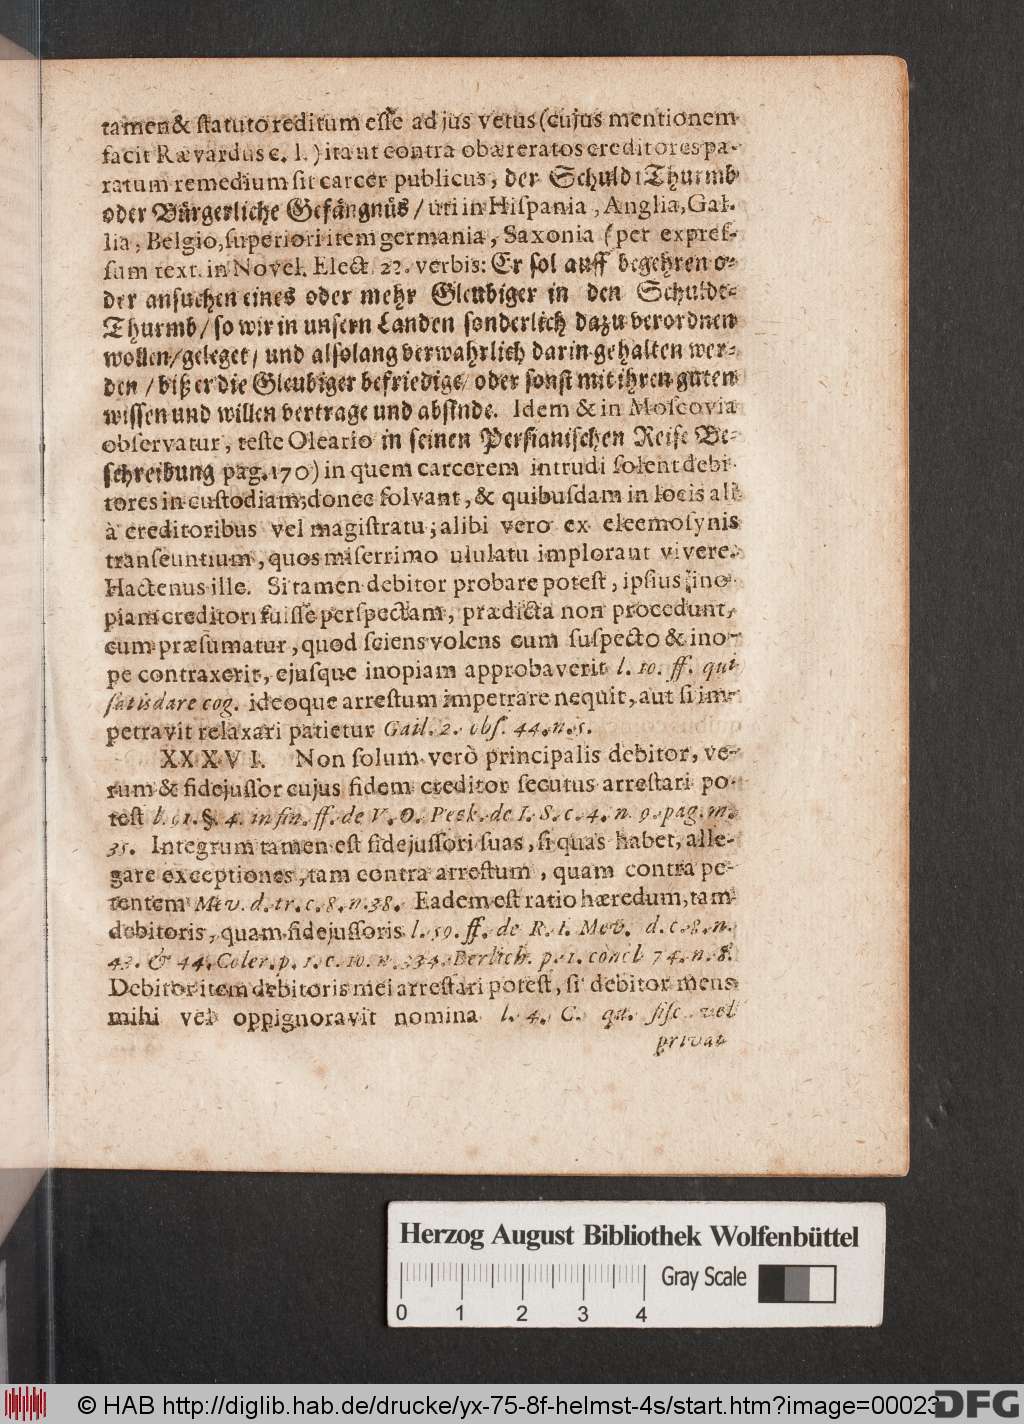 tamen & ſtatuto reditum eſſe ad jus vetus (cujus mentionem
facit Rævardus c. l.) ita ut contra obæreratos creditores pa-
ratum remedium ſit carcer publicus, der Schuldt Thurmb
oder Bürgerliche Gefängnüs / uti in Hiſpania, Anglia, Gal-
lia, Belgio, ſuperiori item germania, Saxonia (per expreſ-
ſum text. in Novel. Elect. 22. verbis: Er ſol auff begehren o-
der anſuchen eines oder mehr Gleubiger in den Schuldt-
Thurmb / ſo wir in unſern Landen ſonderlich dazu verordnen
wollen / geleget / und alſolang verwahrlich darin gehalten wer-
den / biß er die Gleubiger befriedige / oder ſonſt mit ihren guten
wiſſen und willen vertrage und abfinde. Idem & in Moſcovia
obſervatur, teſte Oleario in ſeinen Perſianiſchen Reiſe Be-
ſchreibung pag. 170) in quem carcerem intrudi ſolent debi-
tores in cuſtodiam, donec ſolvant, & quibuſdam in locis ali
à creditoribus vel magiſtratu; alibi vero ex eleemoſynis
tranſeuntium, quos miſerrimo ululatu implorant vivere.
Hactenus ille. Si tamen debitor probare poteſt, ipſius ino-
piam creditori fuiſſe perſpectam, prædicta non procedunt,
cum præſumatur, quod ſciens volens cum ſuſpecto & ino-
pe contraxerit, ejusque inopiam approbaverit l. 10. ff. qui
ſatisdare cog. ideoque arreſtum impetrare nequit, aut ſi im-
petravit relaxari patietur Gail. 2. obſ. 44. n. 5.
XXXVI. Non ſolum verò principalis debitor, ve-
rum & fidejuſſor cujus fidem creditor ſecutus arreſtari po-
teſt l. 61. §. 4. in fin. ff. de V. O. Peck. de I. S. c. 4. n. 9. pag. m.
35. Integrum tamen eſt fidejuſſori ſuas, ſi quas habet, alle-
gare exceptiones, tam contra arreſtum, quam contra pe-
tentem Mev. d. tr. c. 8. n. 38. Eadem eſt ratio hæredum, tam
debitoris, quam fidejuſſoris l. 59. ff. de R. I. Mev. d. c. 8. n.
43. & 44. Coler. p. 1. c. 10. n. 334. Berlich. p. 1. concl. 74. n. 8.
Debitor item debitoris mei arreſtari poteſt, ſi debitor meus
mihi vel oppignoravit nomina l. 4. C. qu. fiſc. vel
privat
Herzog August Bibliothek Wolfenbüttel
Gray Scale
0 1 2 3 4
© HAB http://diglib.hab.de/drucke/yx-75-8f-helmst-4s/start.htm?image=00023
DFG